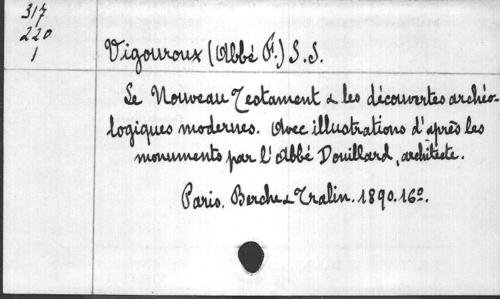 317
220
1
Vigouroux (Abbé F.) S.S.
Le Nouveau Testament & les découvertes archéo-
logiques modernes. Avec illustrations d'après les
monuments par l'Abbé Douillard, architecte.
Paris. Berche & Tralin. 1890. 16º.